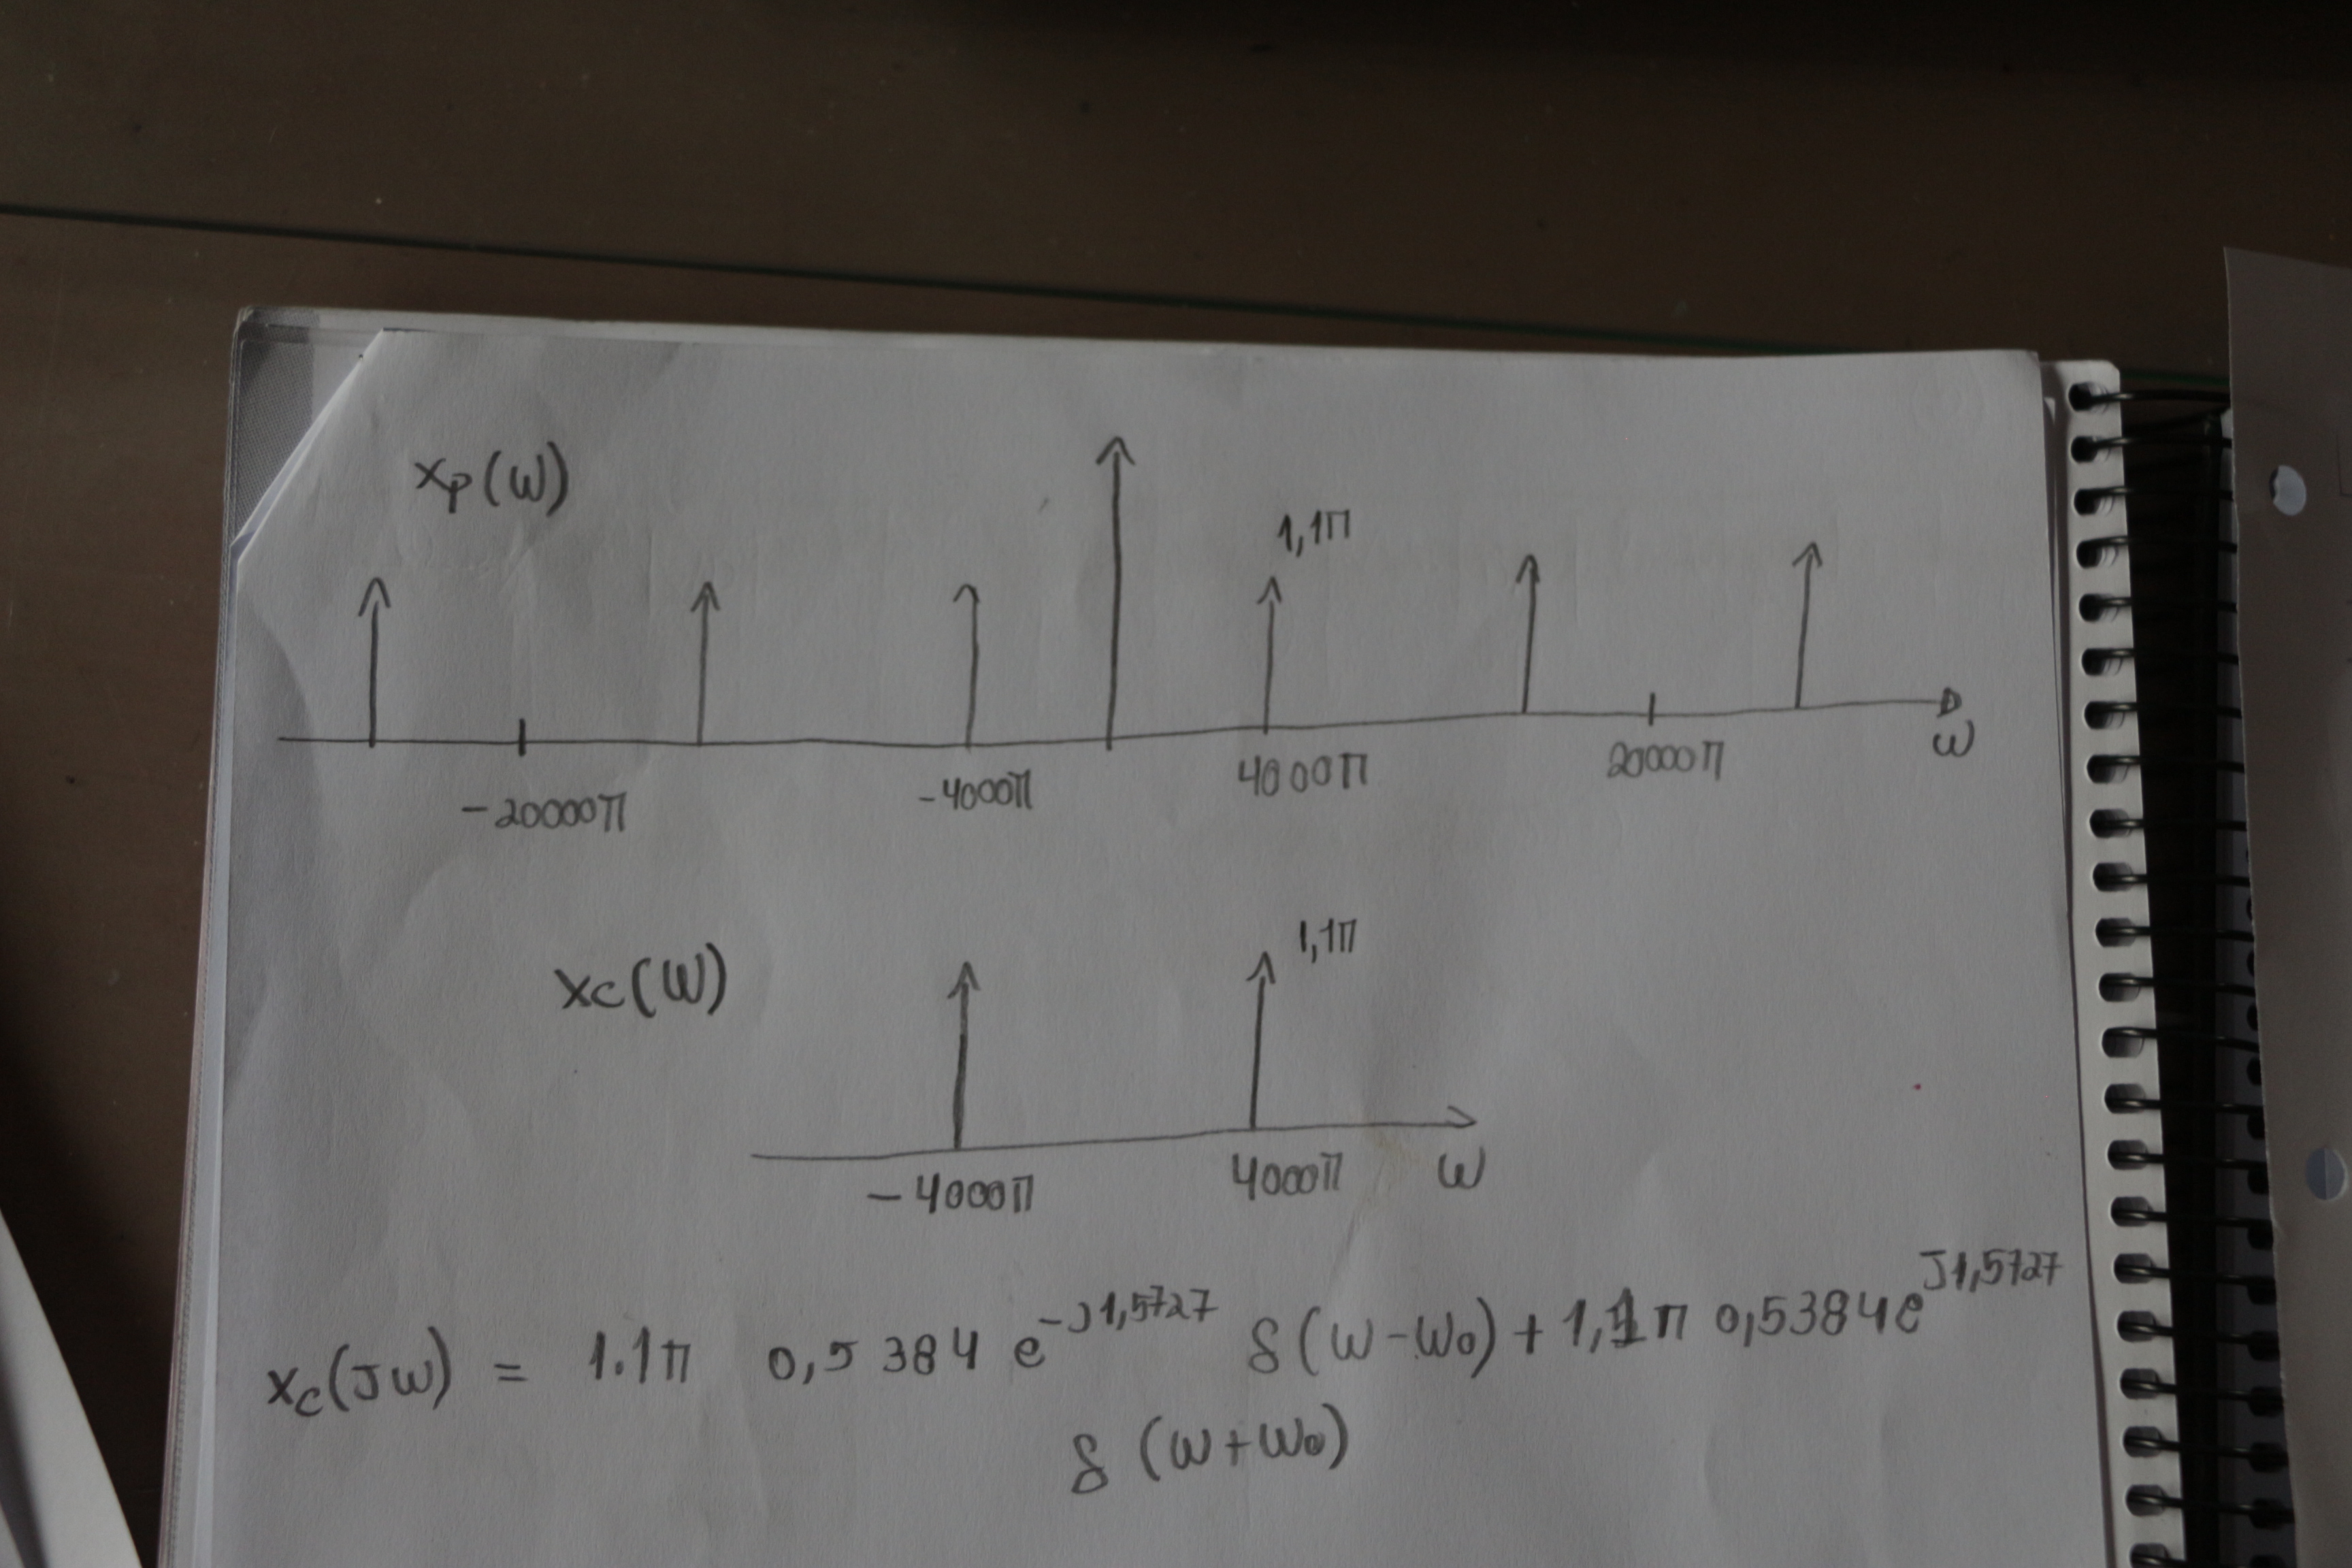 xp(ω)
1,1π
-20000π -4000π 4000π 20000π ω
xc(ω) 1,1π
-4000π 4000π ω
xc(Jω) = 1.1π 0,5384 e^-J1,5727 δ(ω-ω0) + 1,1π 0,5384 e^J1,5727
δ(ω+ω0)